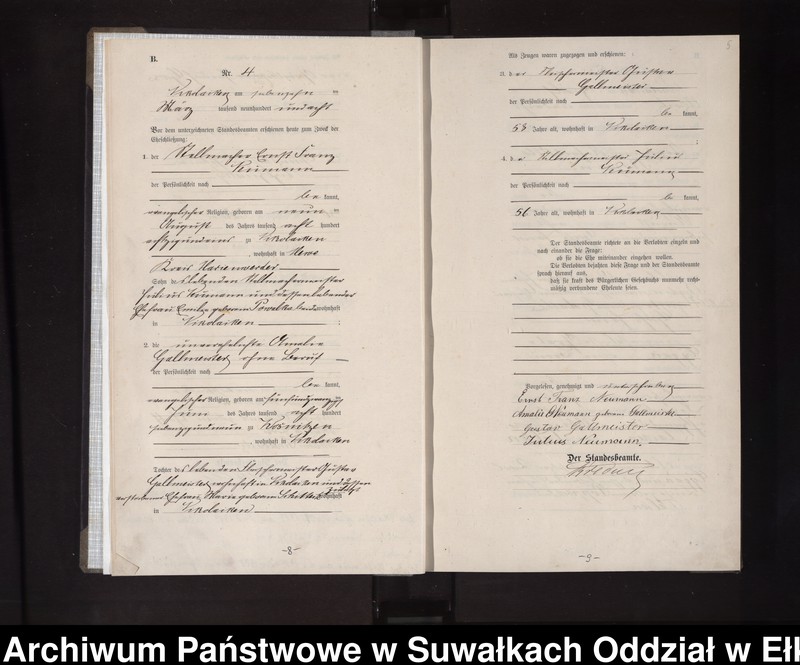 B.
Nr. 4
am siebenzehn ten
März tausend neunhundert und acht
Vor dem unterzeichneten Standesbeamten erschienen heute zum Zweck der
Eheschließung:
1. der Stellmacher Ernst Franz
Neumann
der Persönlichkeit nach
be kannt,
evangelischer Religion, geboren am neun ten
August des Jahres tausend acht hundert
zu Nikolaiken
, wohnhaft in Mewe
Kreis Marienwerder
Sohn des Stellmachermeister
Julius Neumann und dessen
Ehefrau geborenen wohnhaft
in Nikolaiken ;
2. die unverehelichte Amalie
Gallmeister, ohne Beruf
der Persönlichkeit nach
be kannt,
evangelischer Religion, geboren am
Juni des Jahres tausend acht hundert
zu
, wohnhaft in Nikolaiken
Tochter des Gustav
Gallmeister, wohnhaft in Nikolaiken und dessen
Ehefrau Marie geborenen wohnhaft
in Nikolaiken
-8-
5
Als Zeugen waren zugezogen und erschienen:
3. der Gustav
Gallmeister
der Persönlichkeit nach
be kannt,
53 Jahre alt, wohnhaft in Nikolaiken
;
4. der Stellmachermeister Julius
Neumann
der Persönlichkeit nach
be kannt,
56 Jahre alt, wohnhaft in Nikolaiken
Der Standesbeamte richtete an die Verlobten einzeln und
nach einander die Frage:
ob sie die Ehe miteinander eingehen wollen.
Die Verlobten bejahten diese Frage und der Standesbeamte
sprach hierauf aus,
daß sie kraft des Bürgerlichen Gesetzbuchs nunmehr recht-
mäßig verbundene Eheleute seien.
Vorgelesen, genehmigt und unterschrieben
Ernst Franz Neumann
Amalie Neumann geborene Gallmeister
Gustav Gallmeister
Julius Neumann.
Der Standesbeamte.
-9-
Archiwum Państwowe w Suwałkach Oddział w Ełk